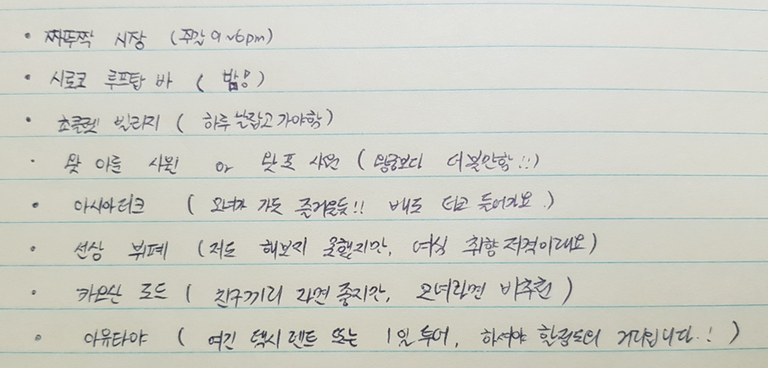 • 짜뚜짝 시장 (주말 9~6pm)
• 시로코 루프탑 바 ( 밤용)
• 초콜렛 빌리지 ( 하루 날잡고 가야함)
· 왓 아룬 사원 or 왓 포 사원 ( 더 볼만함!!)
• 아시아티크 ( 모녀가 가도 즐거울듯!! 배도 타고 들어가요.)
• 선상 뷔페 (저도 해보지 못했지만, 여심 취향저격이래요)
• 카오산 로드 ( 친구끼리 라면 좋지만, 모녀라면 비추천 )
• 아유타야 ( 여긴 택시렌트 또는 1일 투어, 하셔야 할정도의 거리입니다.! )